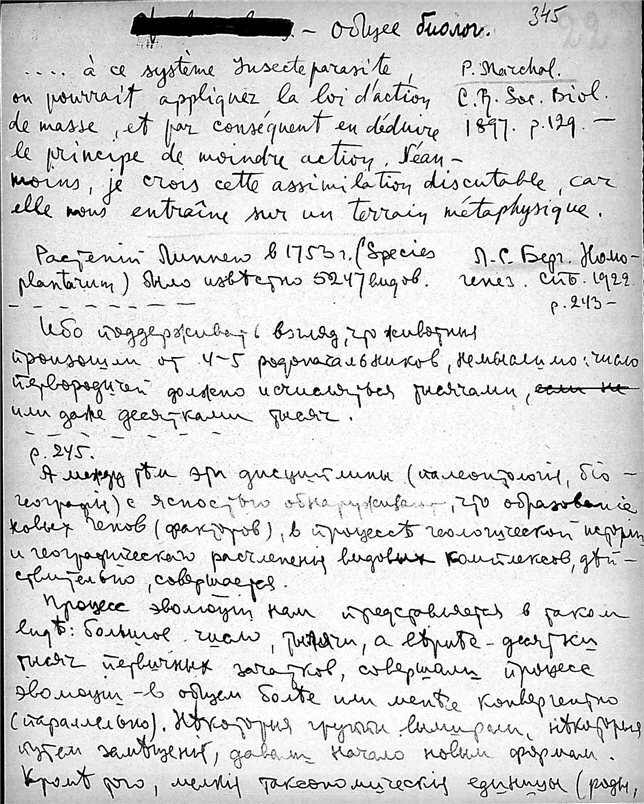 – общее биолог.
345
22
.... à ce système Insecteparasite,
on pourrait appliquer la loi d'action
de masse, et par conséquent en déduire
le principe de moindre action. Néan-
moins, je crois cette assimilation discutable, car
elle nous entraîne sur un terrain métaphysique.
P. Marchal.
C.R. Soc. Biol.
1897. p.129. —
Растений Линнею в 1753 г. (Species
plantarum) было извѣстно 5247 видов.
Л.С. Берг. Номо-
генез. Спб. 1922
p.243 –
Ибо поддерживать взгляд, что животныя
произошли от 4–5 родоначальников, немыслимо: число
первородичей должно исчисляться тысячами, если не
или даже десятками тысяч.
p.245.
А между тѣм эти дисциплины (палеонтологія, био-
географія) с ясностью обнаруживают, что образованіе
новых генов (факторов), в процессѣ геологической исторіи
и географическаго расчлененія видовых комплексов, дѣй-
ствительно, совершается.
Процесс эволюціи нам представляется в таком
видѣ: большое число, тысячи, а вѣрнѣе – десятки
тысяч первичных зачатков, совершали процесс
эволюціи – в общем болѣе или менѣе конвергентно
(параллельно). Нѣкоторыя группы вымирали, нѣкоторыя
путем замѣщенія, давали начало новым формам.
Кромѣ того, мелкія таксономическія единицы (роды,